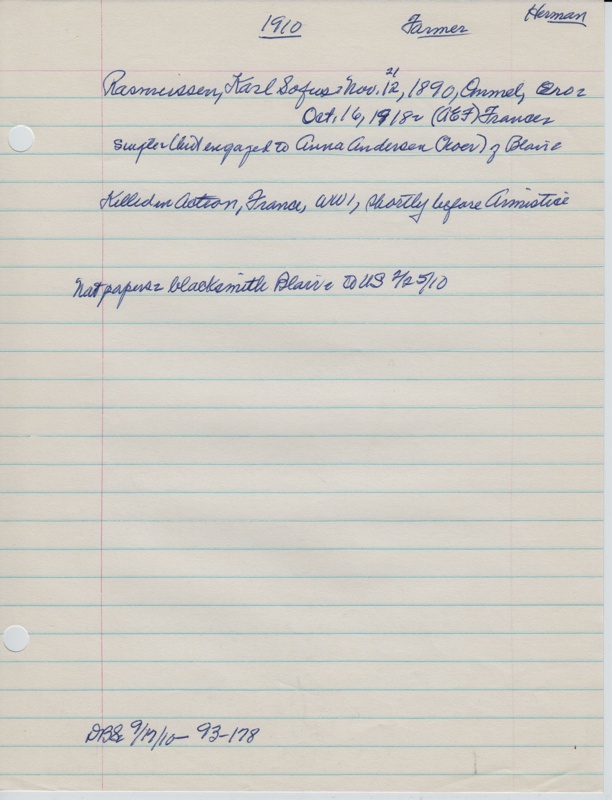 1910 Farmer Herman
Rasmussen, Karl Sofus = Nov. 12, 1890, Ommel, Ero =
21
Oct. 16, 1918 = (AEF) France =
engaged to Anna Andersen of Blair =
Killed in Action, France, WW1, shortly before Armistice
Nat papers = blacksmith Blair = to US 2/25/10
9/17/10 - 93-178